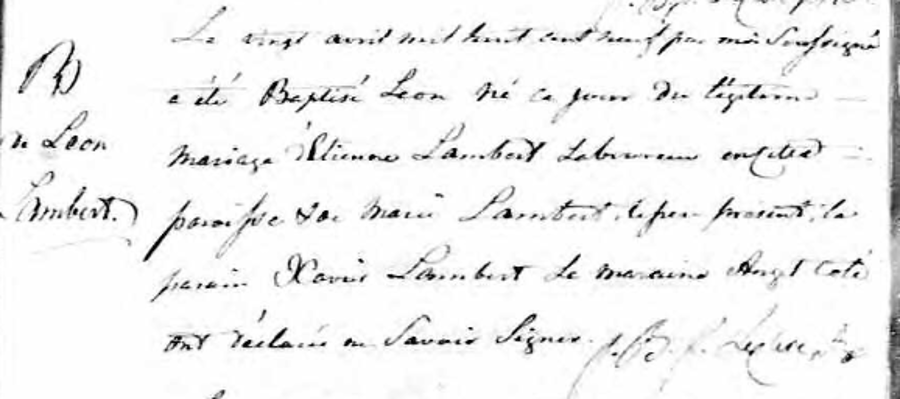 B
de Leon
Lambert.
Le vingt avril mil huit cent neuf par moi Soussigné
a été Baptisé Leon né ce jour du légitime
mariage d'Etienne Lambert Laboureur en cette
paroisse & de Marie Lambert, le pere présent, le
parain Xavier Lambert La maraine Angt Coté
ont déclaré ne Savoir Signer. J. B.